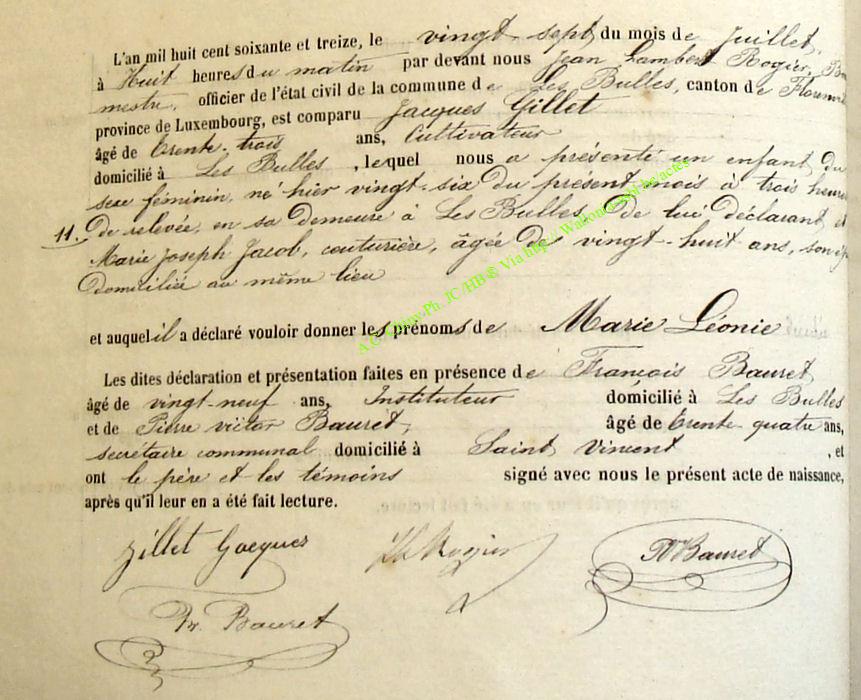 L'an mil huit cent soixante et treize, le vingt sept du mois de Juillet,
à Huit heures du matin par devant nous Jean Lambert Rogier, B
mestre, officier de l'état civil de la commune de Les Bulles, canton de Florenvil
province de Luxembourg, est comparu Jacques Gillet
âgé de trente-trois ans, Cultivateur
domicilié à Les Bulles, lequel nous a présenté un enfant du
sexe féminin, né hier vingt-six du présent mois à trois heures
11. de relevée, en sa demeure à Les Bulles, De lui déclarant, et
Marie Joseph Jacob, couturière, âgée de vingt-huit ans, son ép
domiciliée au même lieu
et auquel il a déclaré vouloir donner les prénoms de Marie Léonie
Les dites déclaration et présentation faites en présence de François Bauret,
âgé de vingt-neuf ans, Instituteur domicilié à Les Bulles
et de Pierre victor Bauret, âgé de trente quatre ans,
secrétaire communal domicilié à Saint Vincent, et
ont le père et les témoins signé avec nous le présent acte de naissance,
après qu'il leur en a été fait lecture.
Gillet Jacques JL Rogier PVBauret
Fr. Bauret